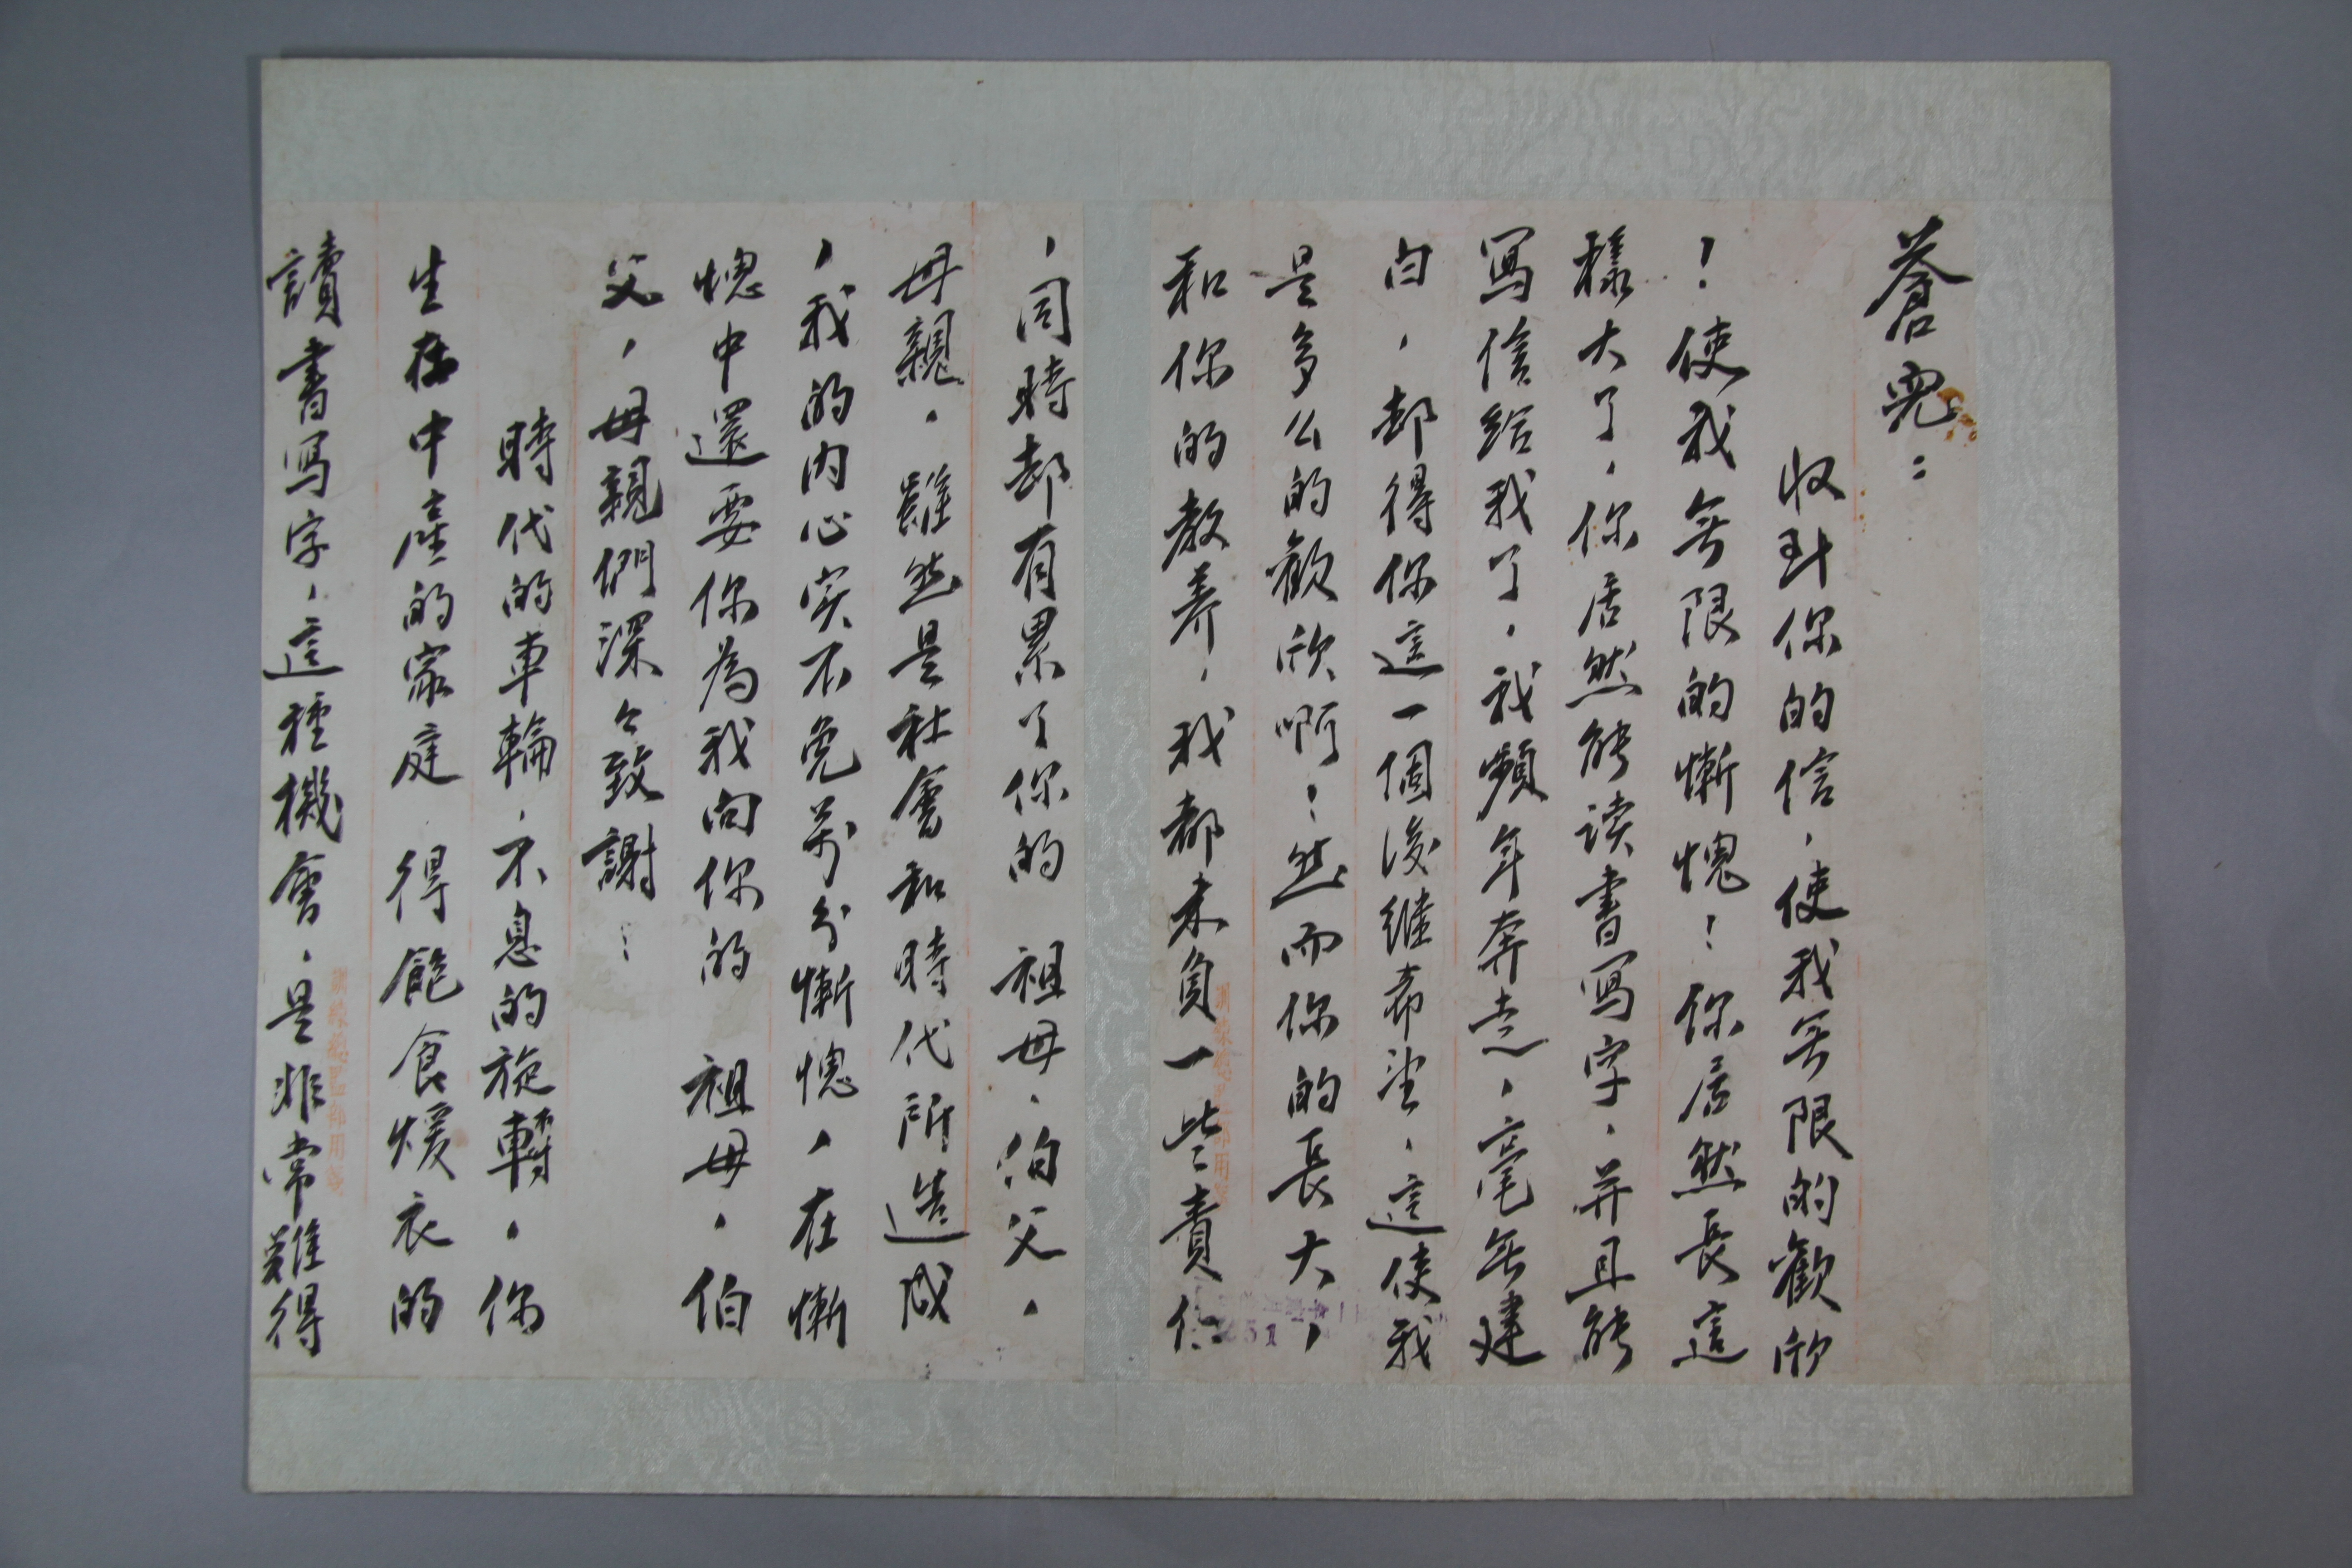 蒼兒：
收到你的信，使我无限的歡欣
！使我无限的慚愧！你居然長這
樣大了，你居然能读書写字，并且能
写信給我了，我頻年奔走，毫无建
白，却得你這一個後继希望，這使我
是多么的歡欣啊！然而你的長大，
和你的教养，我都未負一些責任
，同時却有累了你的 祖母，伯父，
母親，雖然是社會和時代所造成
，我的内心实不免萬分慚愧，在慚
愧中還要你為我向你的 祖母，伯
父，母親們深々致謝！
時代的車輪，不息的旋轉，你
生在中產的家庭 得飽食煖衣的
讀書写字，這種機會，是非常難得
51